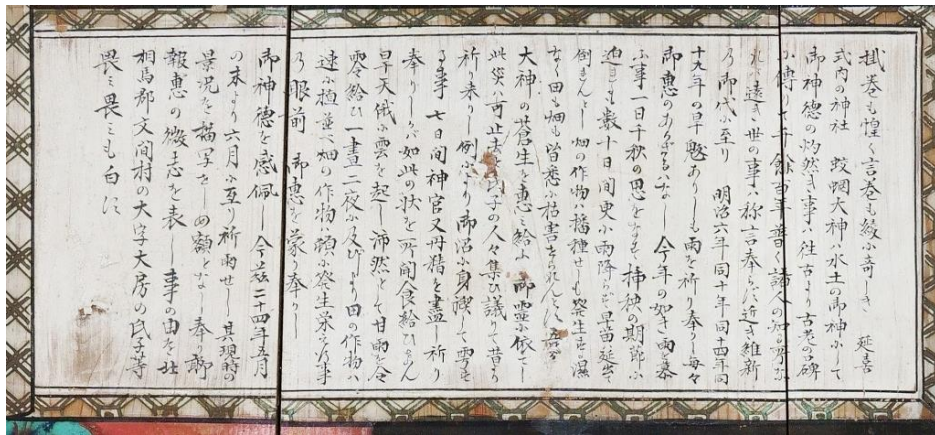 掛巻も惶く言巻も綾ふ奇しき 延喜
式内の神社 蛟蝄大神ハ水土の御神にして
御神徳の灼然き事ハ往古より古老の口碑
か傳りて千餘百年普く諸人の知る所ふ
れバ遠き世の事ハ称言奉らに近き維新
乃御代ふ至り 明治六年同十年同十四年同
十九年の旱魃ありしも雨を祈り奉りし毎々
御恵のあらざるハなし 今年の如き雨を慕
ふ事一日千秋の思をなせり 挿秧の期節ふ
迫れとも数十日間更ふ雨降らず早苗延出て
倒まんとし 畑の作物ハ播種せしも発生する湿
なく田も畑も皆悉く枯害せられんとに 吾が
大神の蒼生を恵ミ給ふ 御霊ふ依てし
此災ハ可止 氏子の人々集ひ議りて昔より
祈り来りし例により御沼ふ身禊して雩を
る事 七日間神官又丹精を盡 祈り
奉りしが如此の状を所聞食給ひけん
旱天俄ふ雲を起し沛然として甘雨を令
零給ひ一晝二夜ふ及びより田の作物ハ
速ふ植並べ畑の作物頭ふ発生栄えし事
乃眼前 御恵を蒙り奉りし
御神徳を感佩し今茲二十四年五月
の末より六月ふ亙り祈雨せし其現時の
景況を描写せしめ額となし奉り聊
報恵の微志を表し事の由を北
相馬郡文間村の大字大房の氏子等
畏ミ畏ミも白に